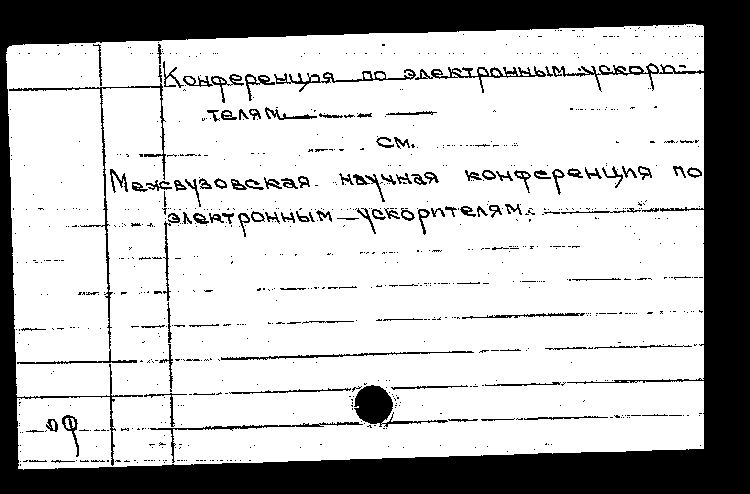 Конференция по электронным ускори-
телям.
см.
Межвузовская научная конференция по
электронным ускорителям.